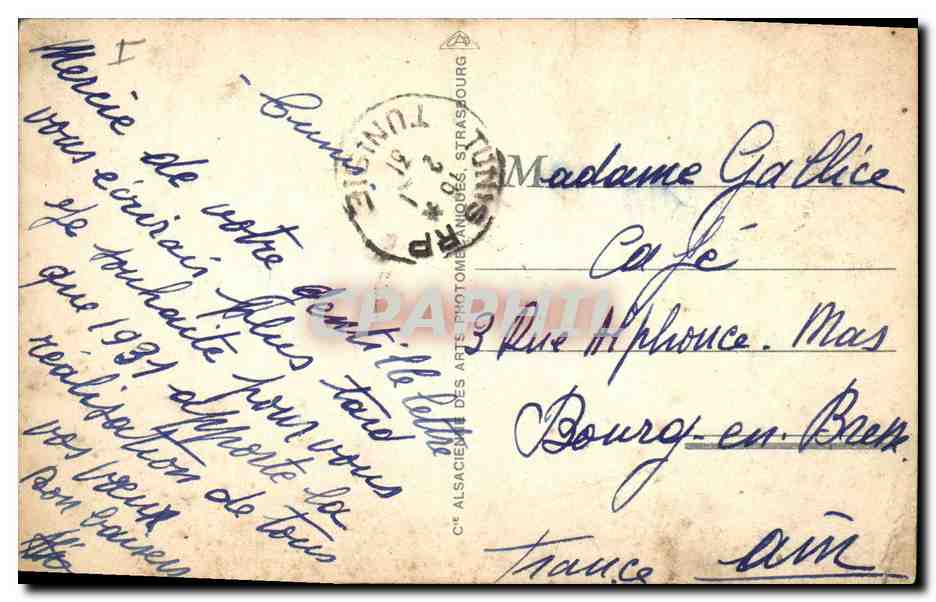 I
- Tunis
Mercie de votre gentille lettre
vous écrirai plus tard
je souhaite pour vous
que 1931 apporte la
réalisation de tous
vos vœux
bon baisers
TUNIS RP
TUNISIE
CIE ALSACIENNE DES ARTS PHOTOMÉCANIQUES, STRASBOURG
CPARPHIL
Madame Gallice
Café
3 Rue Alphonce. Mas
Bourg-en-Bresse.
ain
France